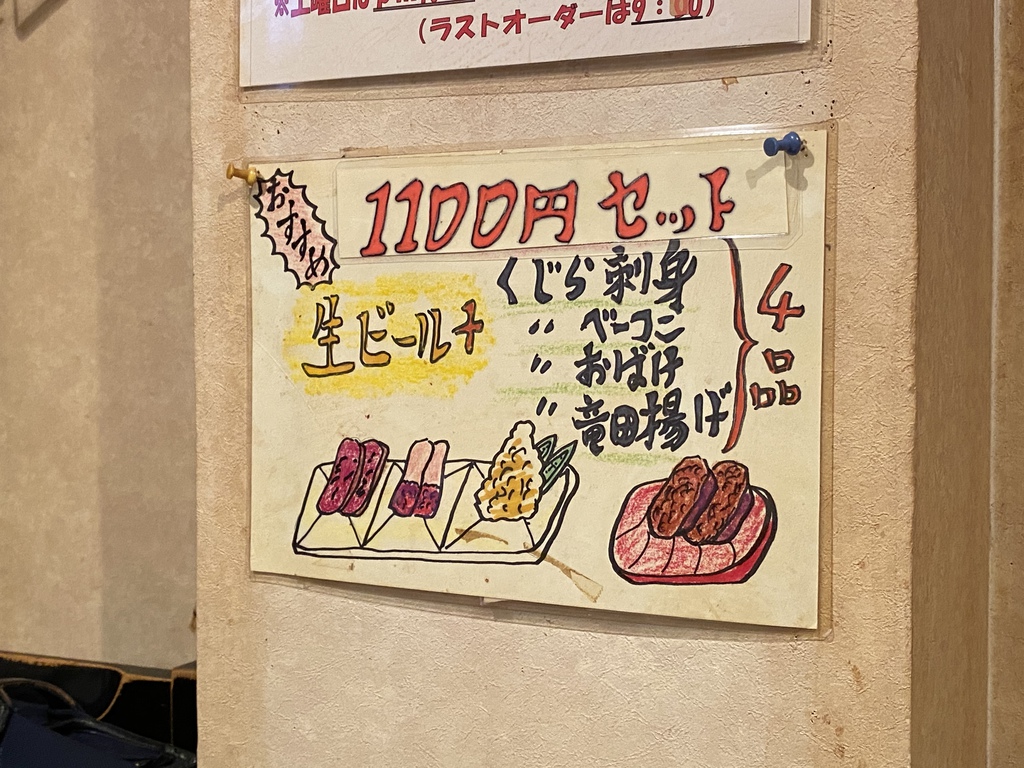 ※土曜日は
(ラストオーダーは9:00)
おすすめ
1100円セット
生ビール+
くじら刺身
〃 ベーコン
〃 おばけ
〃 竜田揚げ
4品